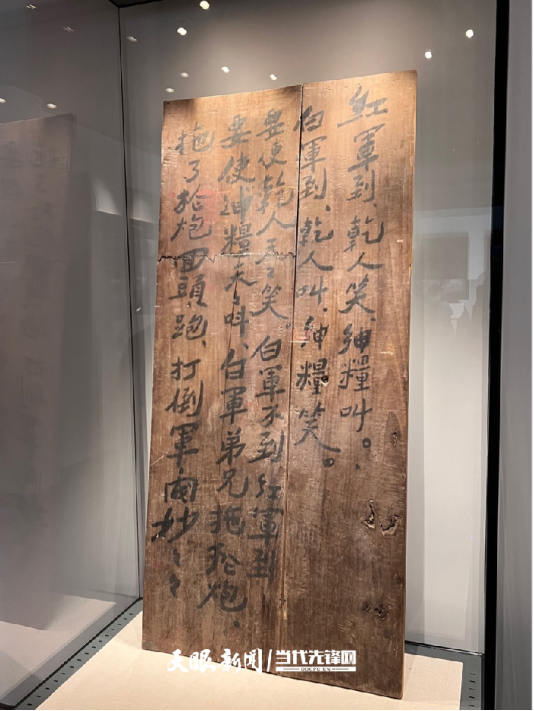 紅軍到、乾人笑、紳糧叫。
白軍到、乾人叫、紳糧笑。
要使乾人天々笑。白軍不到紅軍到
要使紳糧天々叫、白軍弟兄拖抢炮、
拖了抢炮回頭跑、打倒軍閥妙々々
天眼新闻 当代先锋网